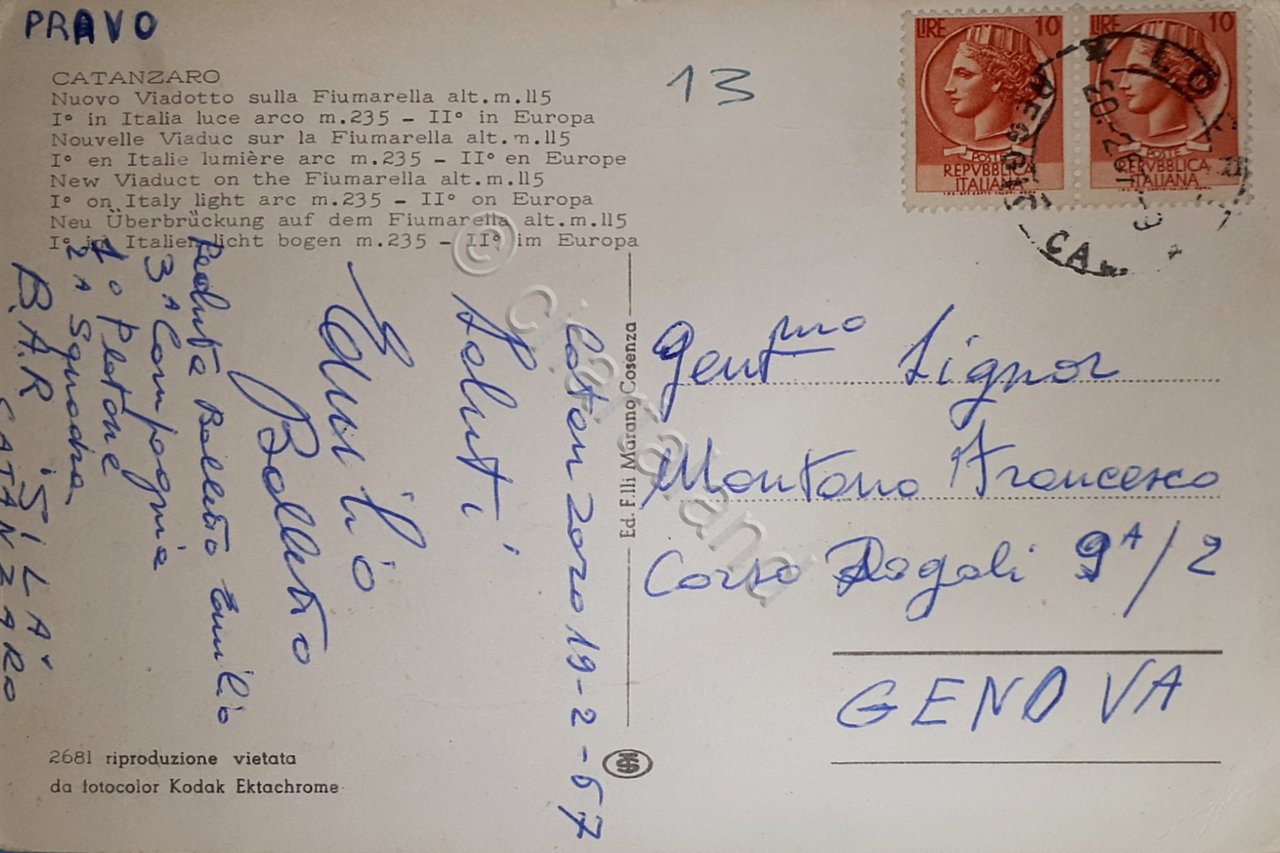 PRAVO
CATANZARO
Nuovo Viadotto sulla Fiumarella alt.m.115
I° in Italia luce arco m.235 - II° in Europa
Nouvelle Viaduc sur la Fiumarella alt.m.115
I° en Italie lumière arc m.235 - II° en Europe
New Viaduct on the Fiumarella alt.m.115
I° on Italy light arc m.235 - II° on Europa
Neu Überbrückung auf dem Fiumarella alt.m.115
I° im Italien licht bogen m.235 - II° im Europa
13
LIRE 10
POSTE
REPVBBLICA
ITALIANA
LIRE 10
POSTE
REPVBBLICA
ITALIANA
Catanzaro 19-2-67
Saluti
Emilio
Balletto
Recluta Balletto Emilio
3ª Compagnia
1° Plotone
2ª Squadra
B.A.R "SILA"
CATANZARO
Ed. F.lli Marano Cosenza
Gent.mo Signor
Montano Francesco
Corso Dogali 9A/2
GENOVA
2681 riproduzione vietata
da fotocolor Kodak Ektachrome
© cipraiana